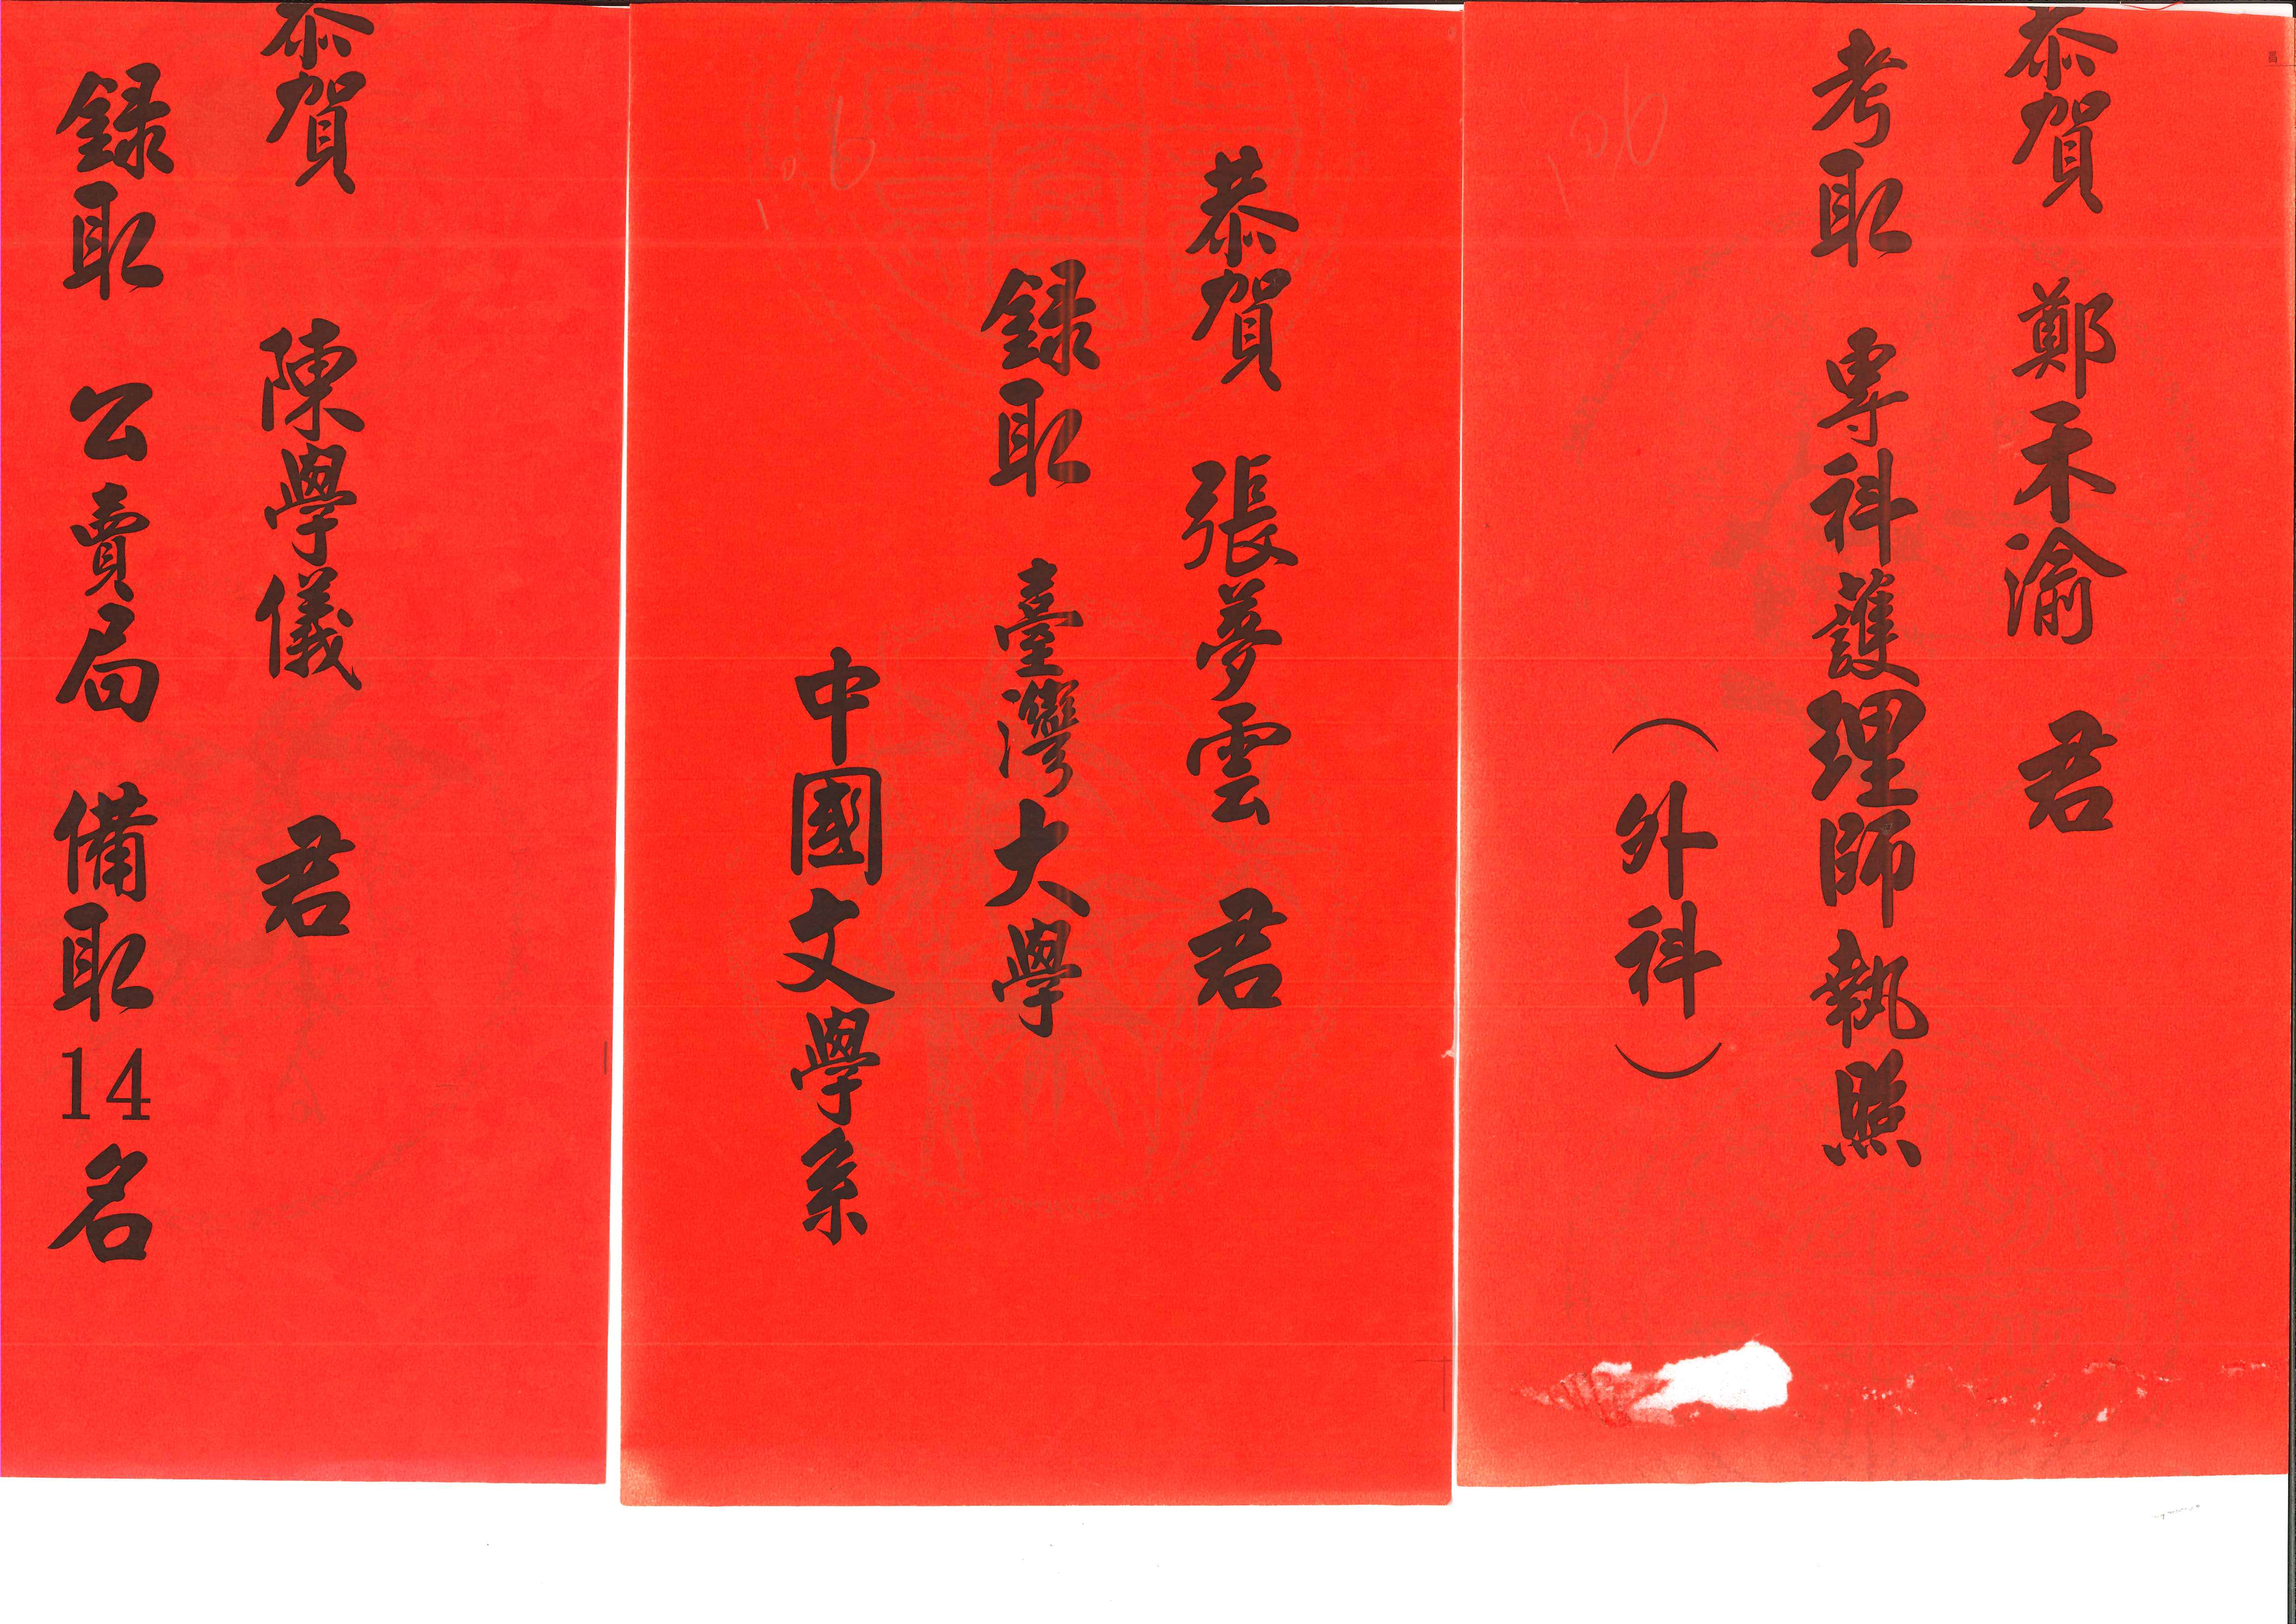 恭賀 鄭禾渝 君
考取 專科護理師執照
（外科）
恭賀 張夢雲 君
錄取 臺灣大學
中國文學系
恭賀 陳學儀 君
錄取 公賣局 備取14名